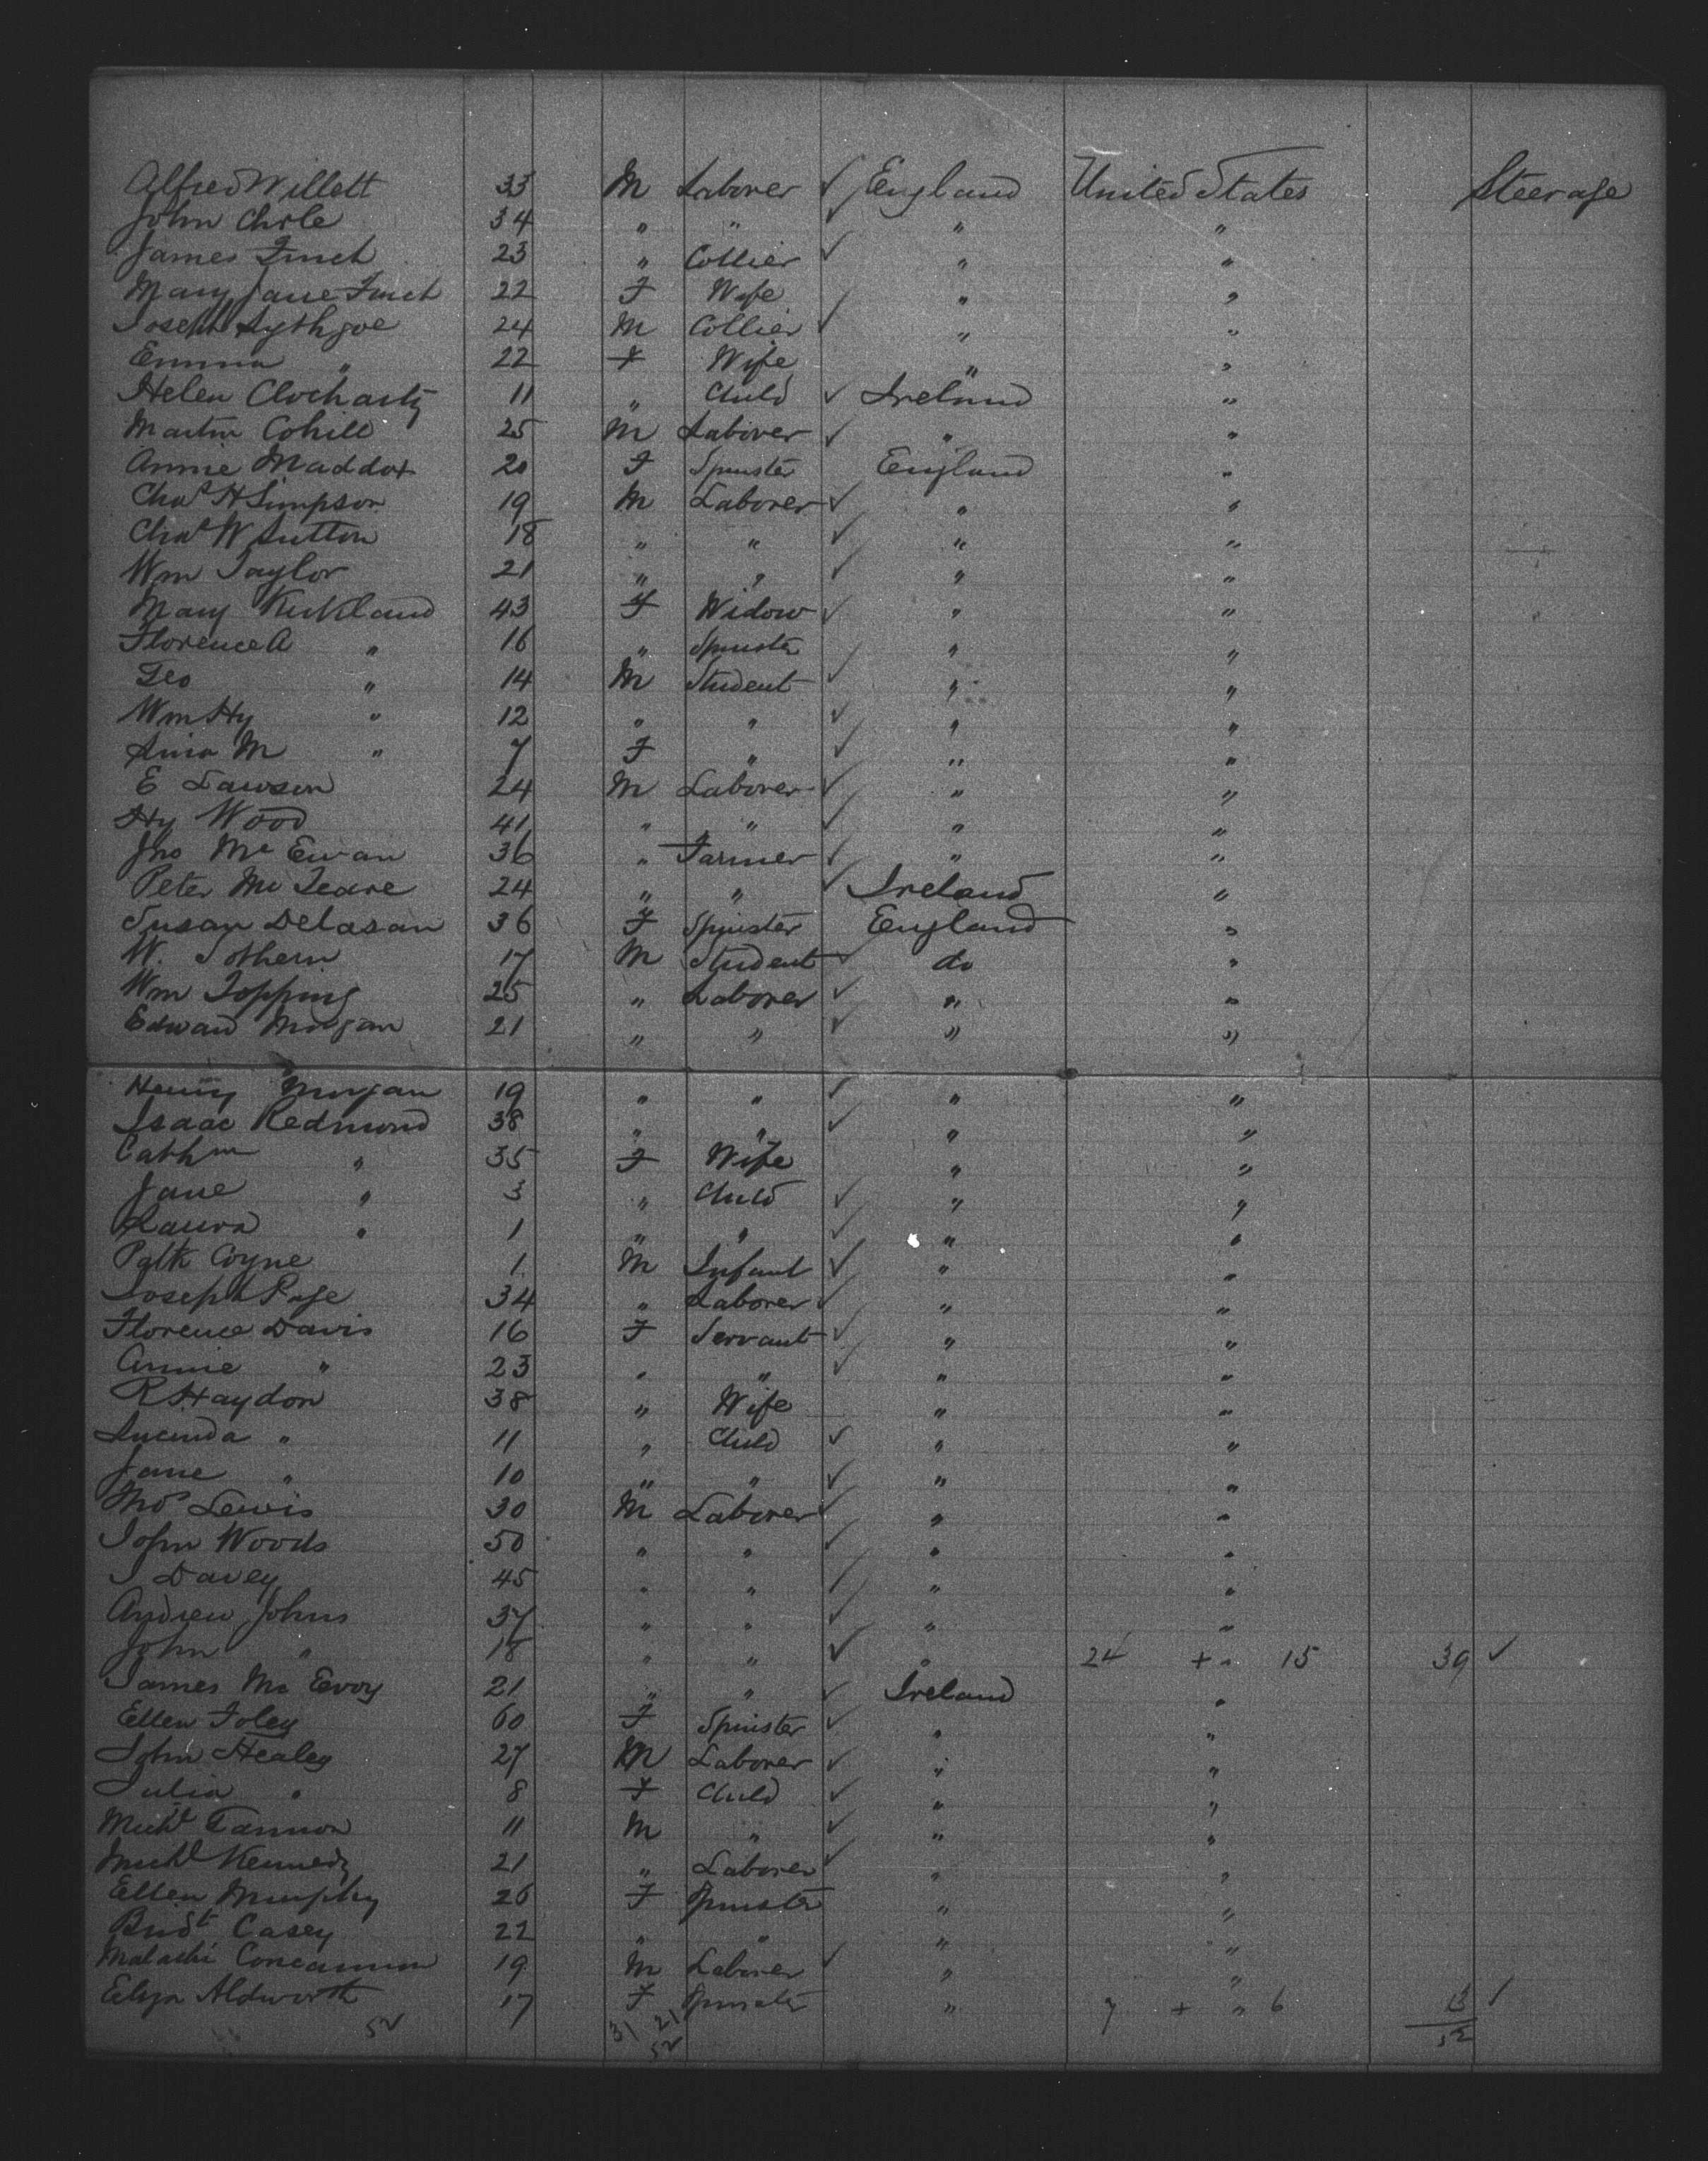 Alfred Willett 33 M Laborer ✓ England United States Steerage
John Chrle 34 " " ✓ " "
James Finch 23 " Collier ✓ " "
Mary Jane Finch 22 F Wife " "
Joseph Lythgoe 24 M Collier ✓ " "
Emma " 22 F Wife " "
Helen Clocharty 11 " Child ✓ Ireland "
Martin Cohill 25 M Laborer ✓ " "
Annie Maddox 20 F Spinster England "
Chas H Simpson 19 M Laborer ✓ " "
Chas W Sutton 18 " " ✓ " "
Wm Taylor 21 " " ✓ " "
Mary Kirkland 43 F Widow ✓ " "
Florence A " 16 " Spinster " "
Geo " 14 M Student ✓ " "
Wm Hy " 12 " " ✓ " "
M " 7 F " ✓ " "
E Lawson 24 M Laborer ✓ " "
Hy Wood 41 " " ✓ " "
Jno Mc Ewan 36 " Farmer ✓ " "
Peter Mc Teare 24 " " ✓ Ireland "
Susan Delasan 36 F Spinster England "
W. Sothern 17 M Student ✓ do "
Wm Topping 25 " Laborer ✓ " "
Edward Morgan 21 " " ✓ " "
Henry Morgan 19 " " ✓ " "
Isaac Redmond 38 " " ✓ " "
Cathne " 35 F Wife " "
Jane " 3 " Child ✓ " "
Laura " 1 " " ✓ " "
Patk Coyne 1 M Infant ✓ " "
Joseph Page 34 " Laborer ✓ " "
Florence Davis 16 F Servant ✓ " "
Annie " 23 " " ✓ " "
R Haydon 38 " Wife " "
Lucinda " 11 " Child ✓ " "
Jane " 10 " " ✓ " "
Thos Lewis 30 M Laborer ✓ " "
John Woods 50 " " ✓ " "
J Davey 45 " " ✓ " "
Andrew Johns 37 " " ✓ " "
John " 18 " " ✓ " 24 + " 15 39 ✓
James Mc Evoy 21 " " ✓ Ireland "
Ellen Foley 60 F Spinster ✓ " "
John Healey 27 M Laborer ✓ " "
Julia " 8 F Child ✓ " "
Michl Cannon 11 M " ✓ " "
Michl Kennedy 21 " Laborer ✓ " "
Ellen Murphy 26 F Spinster " "
Bridt Casey 22 " " " "
Malachi Concannon 19 M Laborer ✓ " "
Eliza Aldworth 17 F Spinster " 7 + " 6 13 ✓
52 31 21 52
52